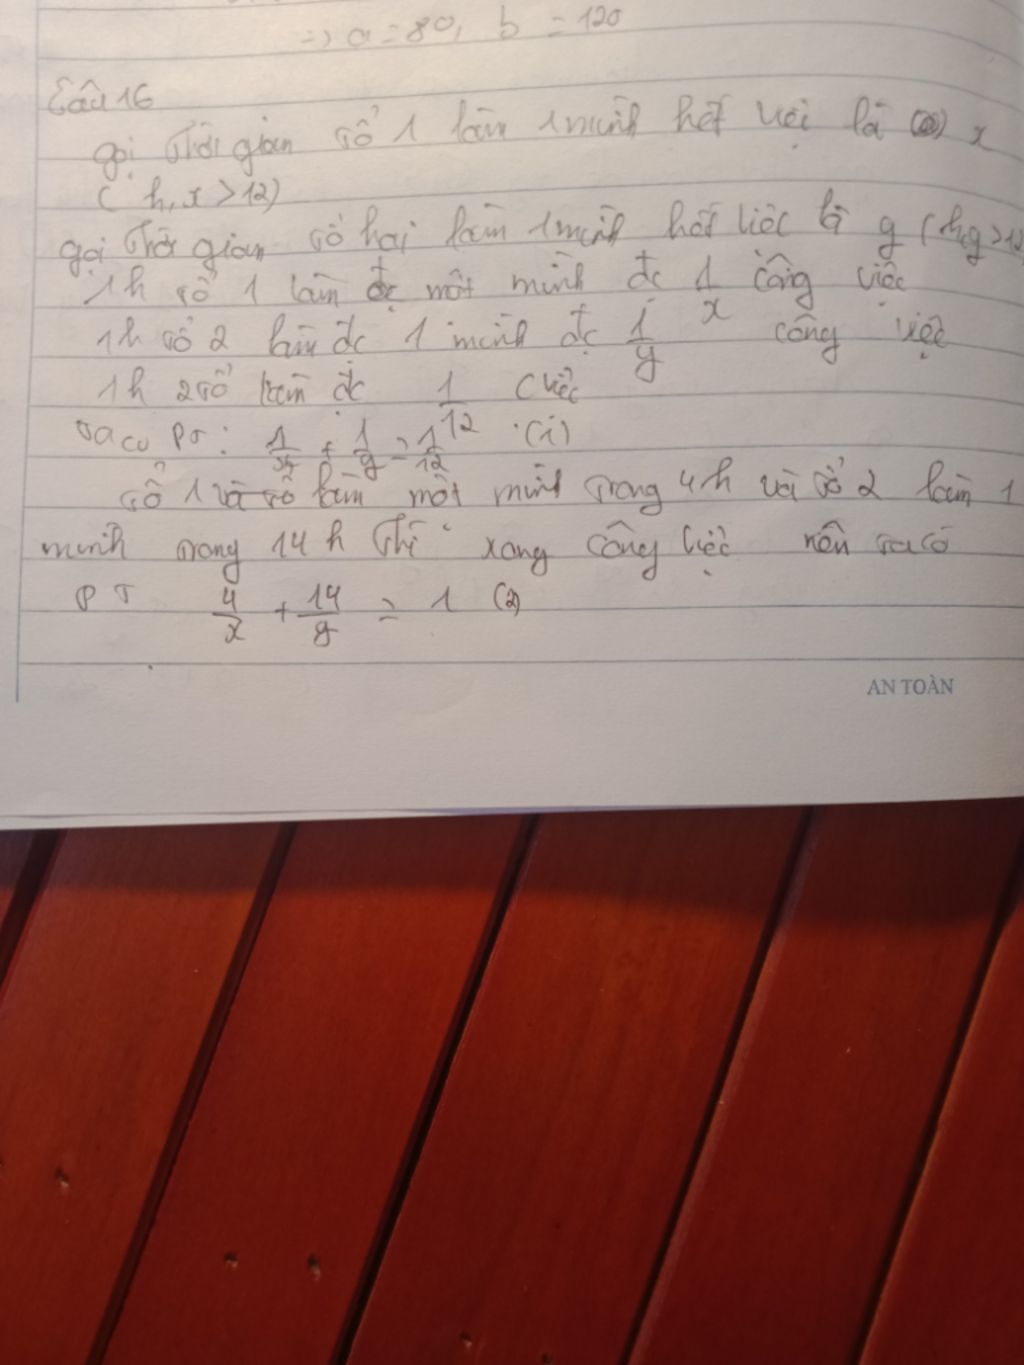 => a = 80, b = 120
Câu 16
gọi thời gian tổ 1 làm 1 mình hết việc là x
( h, x > 12)
gọi thời gian tổ hai làm 1 mình hết việc là y ( h, y > 12
1h tổ 1 làm đc một mình đc 1/x công việc
1h tổ 2 làm đc 1 mình đc 1/y công việc
1h 2 tổ làm đc 1/12 cviệc
ta có PT: 1/x + 1/y = 1/12 (1)
tổ 1 và tổ làm một mình trong 4h và tổ 2 làm 1
mình trong 14 h thì xong công việc nên ta có
PT 4/x + 14/y = 1 (2)
AN TOÀN